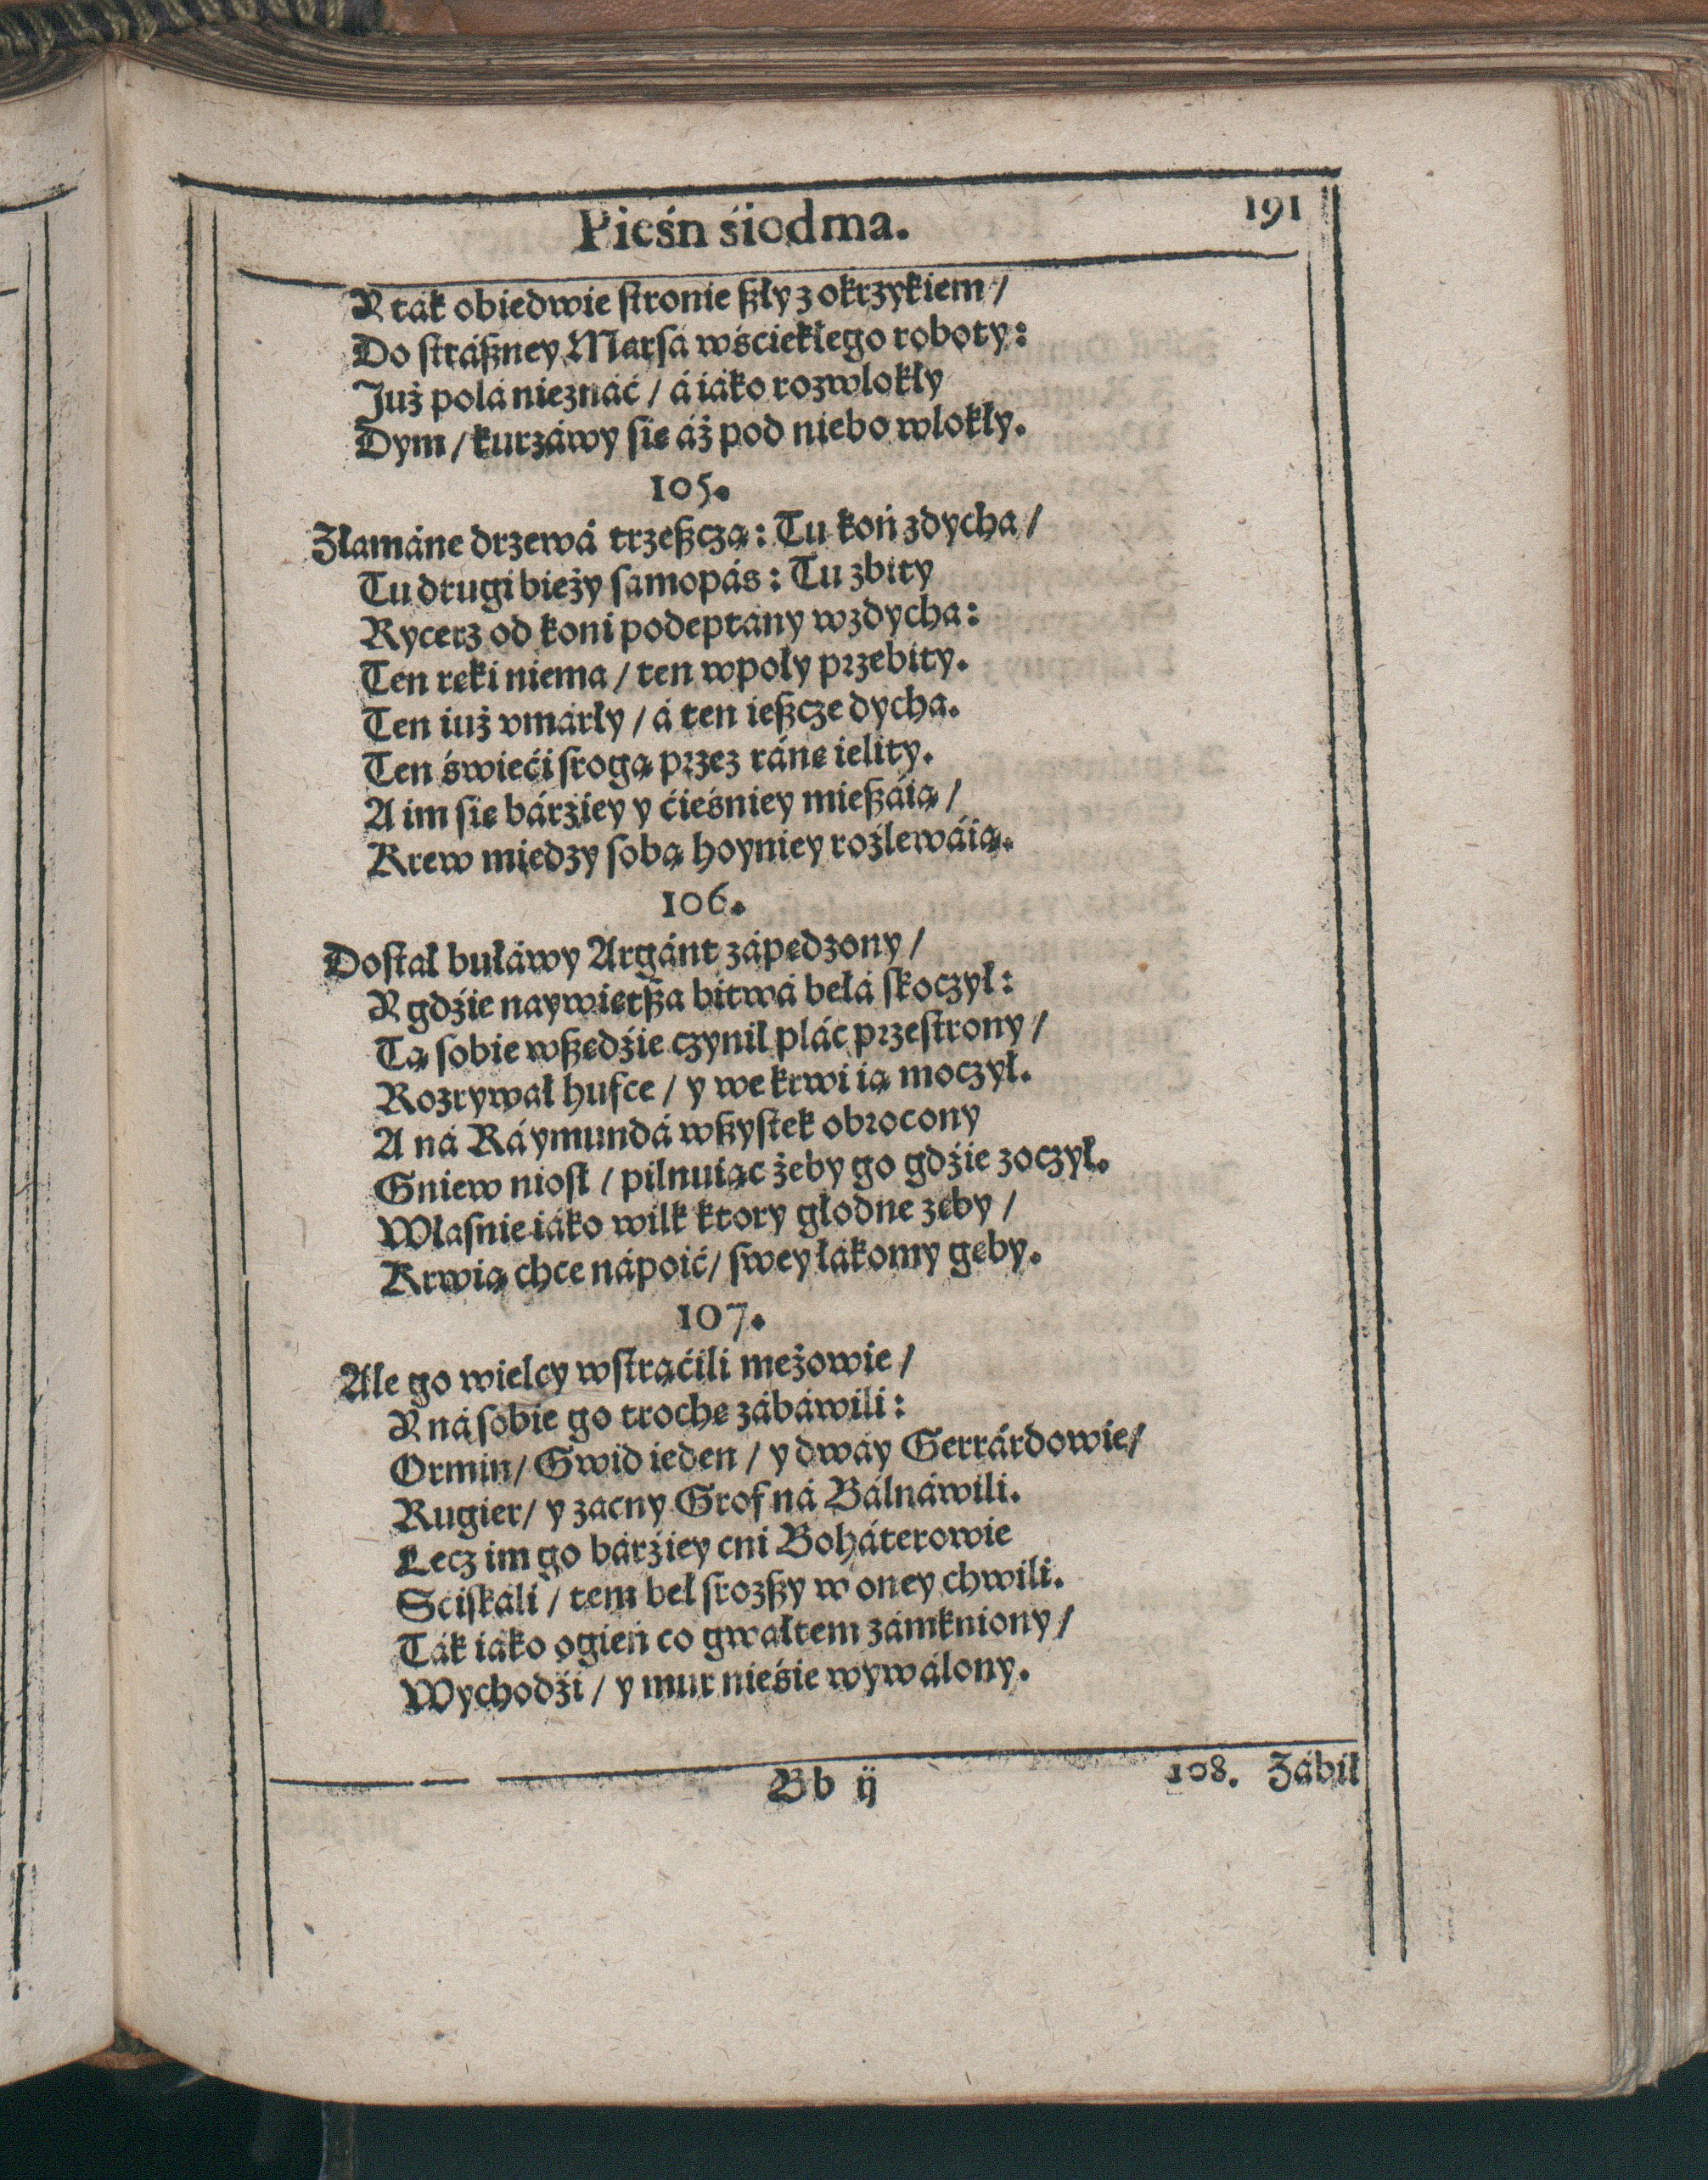 Pieśń śiodma. 191
Y ták obiedwie stronie szły z okrzykiem /
Do strászney Marsá wśćiekłego roboty:
Już polá nieznáć / á iáko rozwlokły
Dym / kurzáwy się áż pod niebo wlokły.
105.
Złamáne drzewá trzeszczą: Tu koń zdycha /
Tu drugi bieży samopás: Tu zbity
Rycerz od koni podeptány wzdycha:
Ten ręki niema / ten wpoły przebity.
Ten iuż vmárły / á ten ieszcze dycha.
Ten świeći srogą przez ránę ielity.
A im się bárźiey y ćieśniey mieszáią /
Krew między sobą hoyniey roźlewáią.
106.
Dostał buławy Argánt zápędzony /
Y gdźie naywiętsza bitwá bełá skoczył:
Tą sobie wszędźie czynił plác przestrony /
Rozrywał hufce / y we krwi ią moczył.
A ná Ráymundá wszystek obrocony
Gniew niosł / pilnuiąc żeby go gdźie zoczył.
Własnie iáko wilk ktory głodne zęby /
Krwią chce nápoić / swey łákomy gęby.
107.
Ale go wielcy wstrąćili mężowie /
Y ná sobie go trochę zábáwili:
Ormin / Gwid ieden / y dwáy Gerrárdowie /
Rugier / y zacny Grof ná Bálnáwili.
Lecz im go bárźiey cni Boháterowie
Sciskáli / tem beł srozszy w oney chwili.
Ták iáko ogień co gwałtem zámkniony /
Wychodźi / y mur nieśie wywálony.
Bb ij 108. Zábił